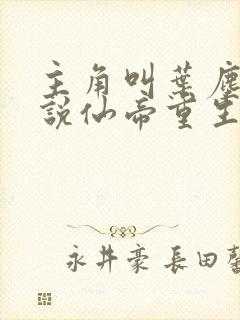 主角叫葉塵
說仙帝重生
永井豪 長田馨